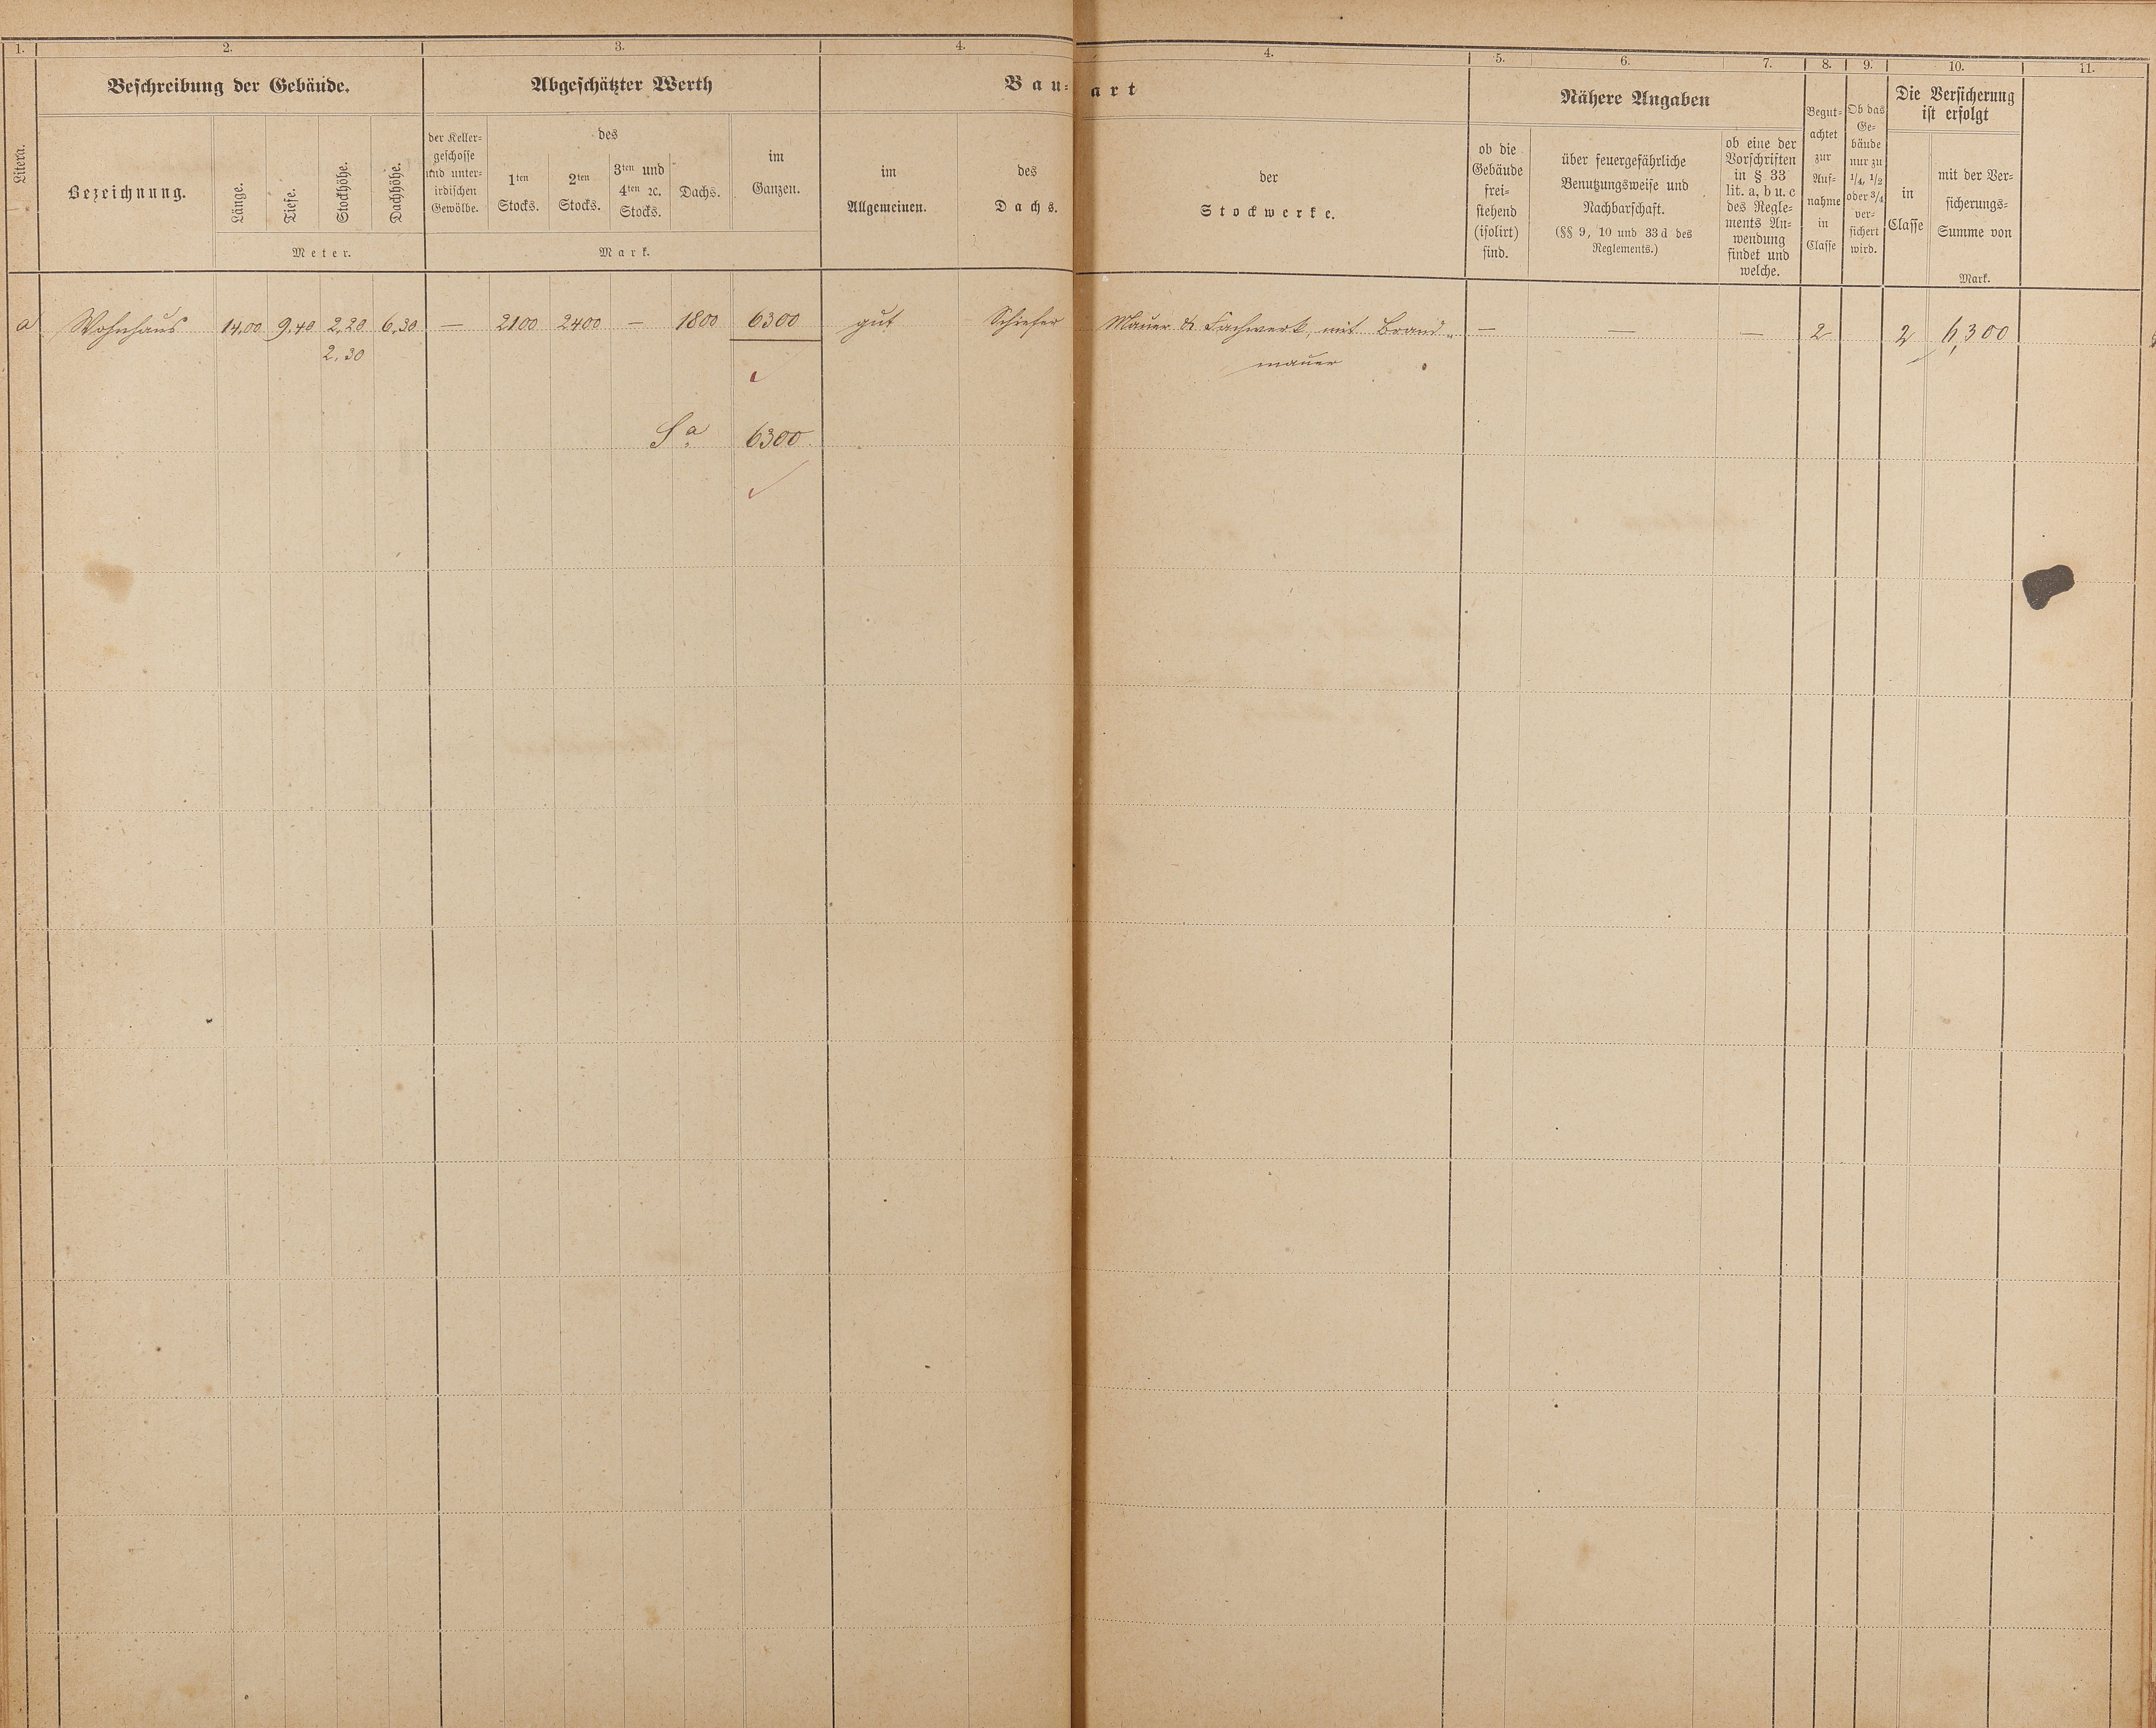 1. 2. 3. 4. 4. 5. 6. 7. 8. 9. 10. 11.
Litera.
Beschreibung der Gebäude.
Bezeichnung.
Länge.
Tiefe.
Stockhöhe.
Dachhöhe.
Meter.
Abgeschätzter Werth
der Keller-
geschosse
und unter-
irdischen
Gewölbe.
des
1ten
Stocks.
2ten
Stocks.
3ten und
4ten ꝛc.
Stocks.
Dachs.
im
Ganzen.
Mark.
Bau-art
im
Allgemeinen.
des
Dachs.
der
Stockwerke.
Nähere Angaben
ob die
Gebäude
frei-
stehend
(isolirt)
sind.
über feuergefährliche
Benutzungsweise und
Nachbarschaft.
(§§ 9, 10 und 33d des
Reglements.)
ob eine der
Vorschriften
in § 33
lit. a, b u. c
des Regle-
ments An-
wendung
findet und
welche.
Begut-
achtet
zur
Auf-
nahme
in
Classe
Ob das
Ge-
bäude
nur zu
1/4, 1/2
oder 3/4
ver-
sichert
wird.
Die Versicherung
ist erfolgt
in
Classe
mit der Ver-
sicherungs-
Summe von
Mark.
a Wohnhaus 14,00 9,40 2,20 6,30 — 2100 2400 — 1800 6300 gut Schiefer Mauer & Fachwerk, mit Brand- — — — 2 2 6,300
2,30 mauer
Sa 6300